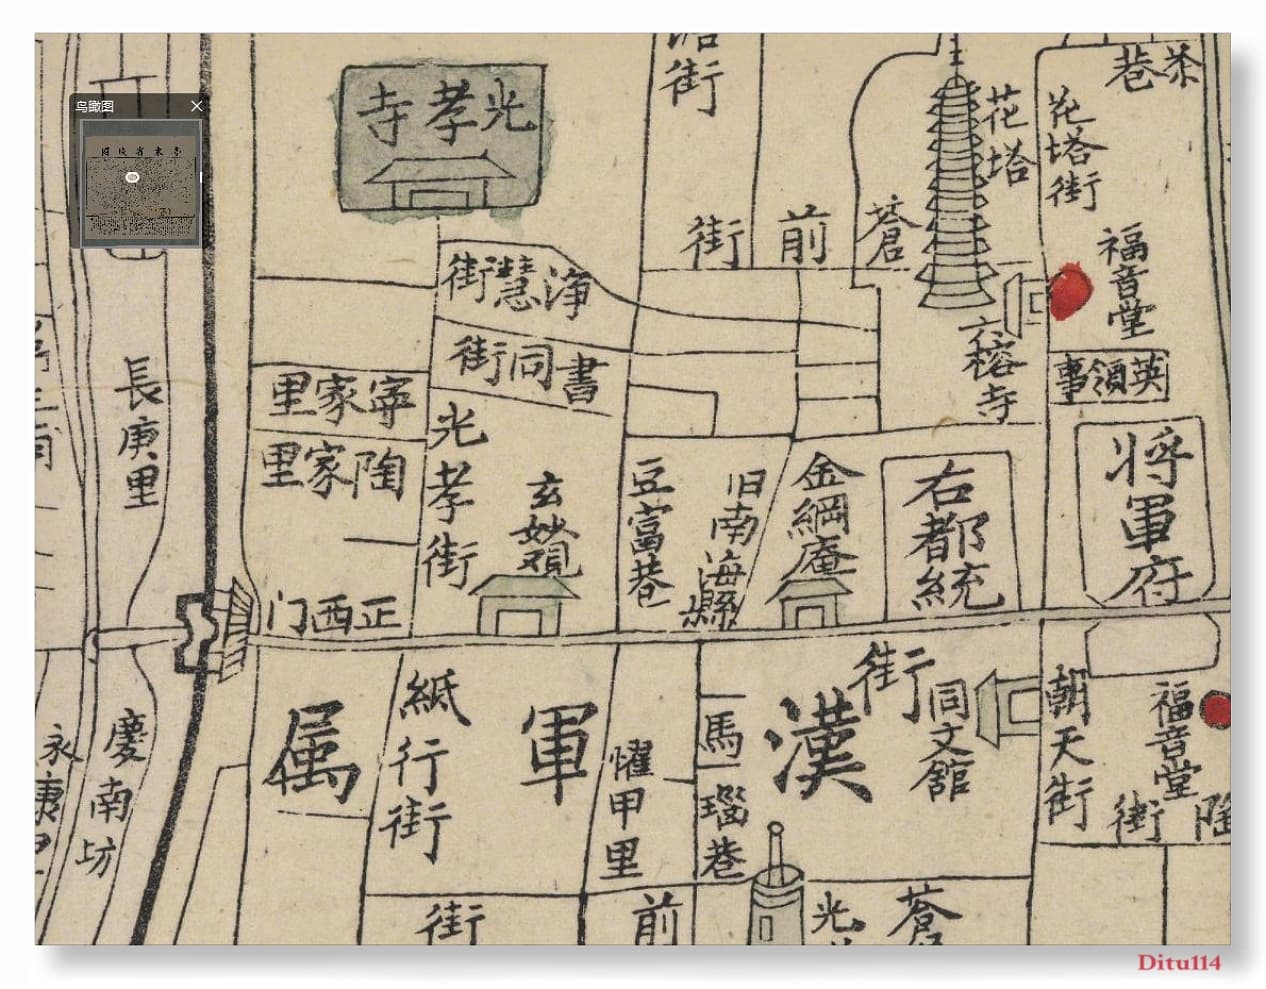 鸟瞰图
街
光孝寺
街
前
倉
花塔
花塔街
巷
福音堂
六榕寺
英領事
淨慧街
書同街
寗家里
陶家里
光孝街
玄妙覌
豆富巷
旧南海縣
金綱庵
右都統
將軍府
長庚里
正西门
街
漢
軍
属
紙行街
懼甲里
馬瑙巷
同文舘
朝天街
福音堂
街
陶
慶南坊
永康里
街
前
光
倉
Ditu114